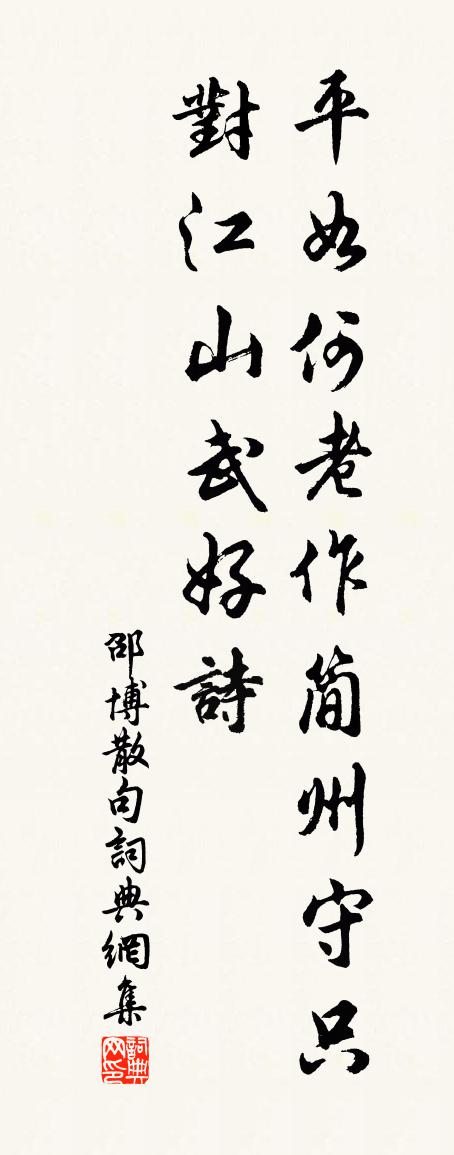 平如何老作簡州守只
對江山武好詩
邵博散句詞典網集
詞典网印